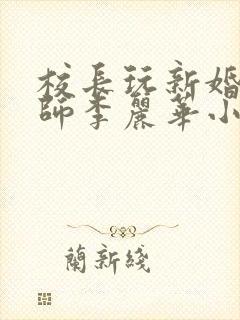 校長玩新婚
師李麗華小
蘭新綫